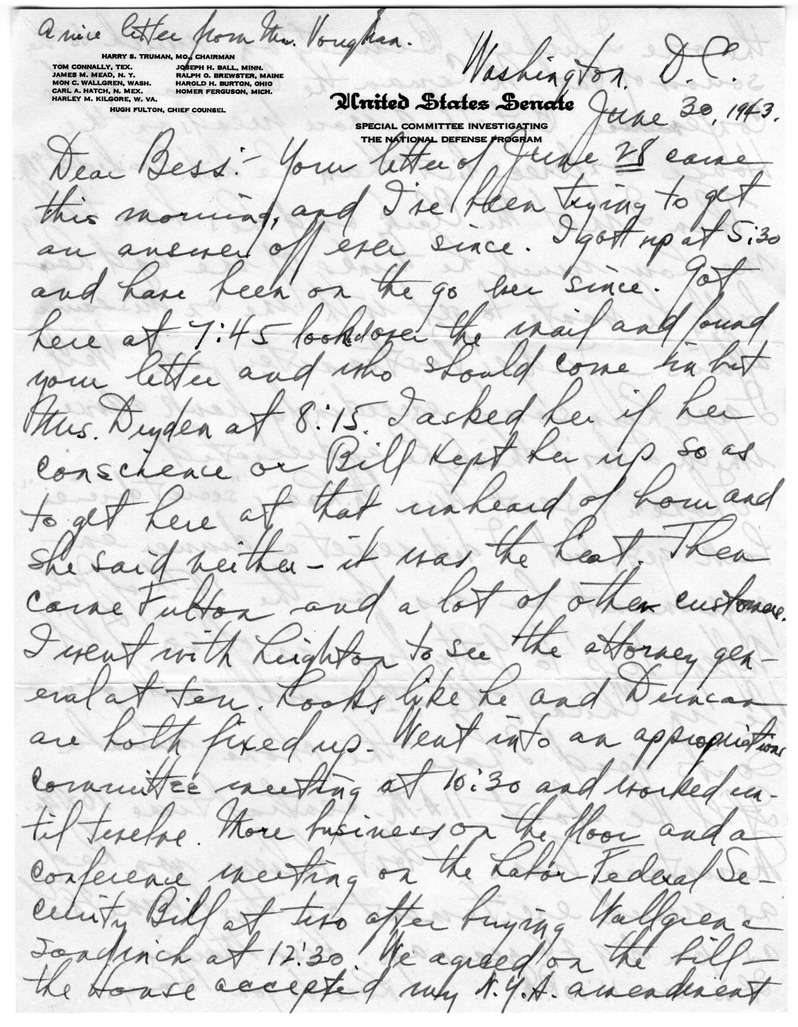 A nice letter from Mr. Vaughan.
Washington, D.C.
HARRY S. TRUMAN, MO., CHAIRMAN
TOM CONNALLY, TEX. JOSEPH H. BALL, MINN.
JAMES M. MEAD, N. Y. RALPH O. BREWSTER, MAINE
MON C. WALLGREN, WASH. HAROLD H. BURTON, OHIO
CARL A. HATCH, N. MEX. HOMER FERGUSON, MICH.
HARLEY M. KILGORE, W. VA.
HUGH FULTON, CHIEF COUNSEL
United States Senate
SPECIAL COMMITTEE INVESTIGATING
THE NATIONAL DEFENSE PROGRAM
June 30, 1943.
Dear Bess:- Your letter of June 28 came
this morning, and I've been trying to get
an answer off ever since. I got up at 5:30
and have been on the go ever since. Got
here at 7:45 looked over the mail and found
your letter and who should come in but
Mrs. Dryden at 8:15. I asked her if her
conscience or Bill kept her up so as
to get here at that unheard of hour and
she said neither - it was the heat. Then
came Fulton and a lot of other customers.
I went with Leighton to see the attorney gen-
eral at ten. Looks like he and Duncan
are both fixed up. Went into an appropriations
committee meeting at 10:30 and worked un-
til twelve. More business on the floor and a
conference meeting on the Labor Federal Se-
curity Bill at two after buying Wallgren a
sandwich at 12:30. We agreed on the bill -
the House accepted my N.Y.A. amendment